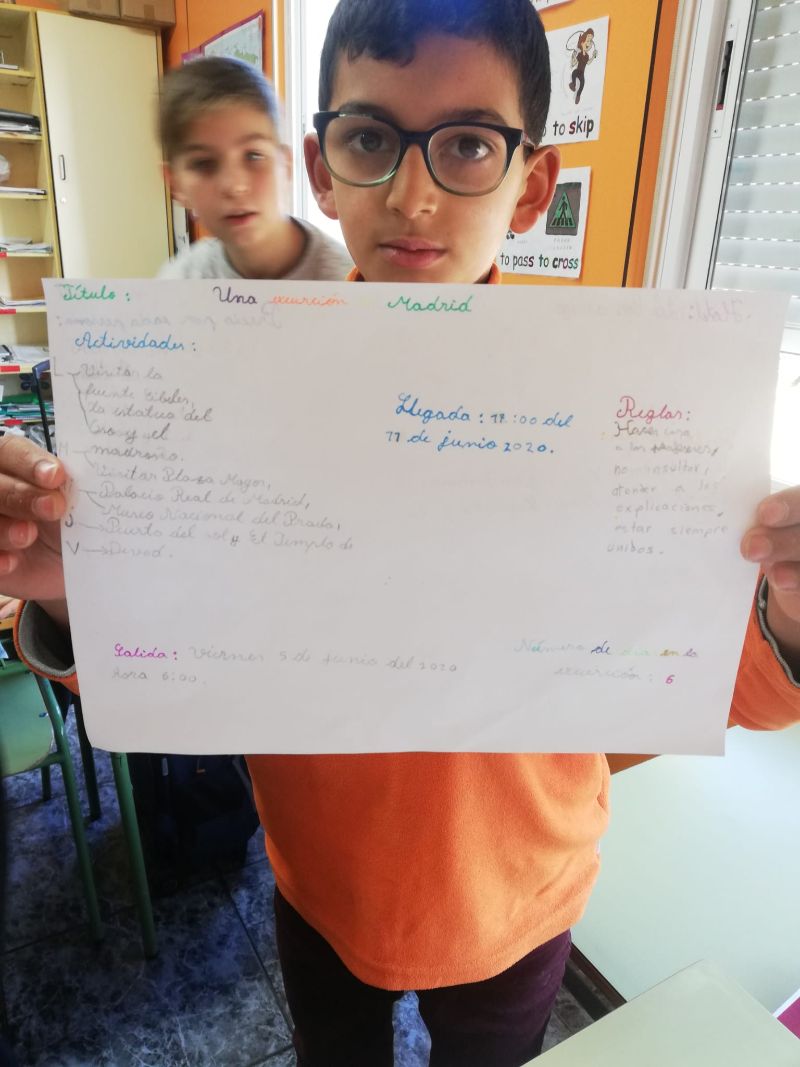 to skip
to pass to cross
Título: Una excursión a Madrid
Actividades:
L
Visitar la
fuente Cibeles,
la estatua del
Oso y el
madroño.
M
Visitar Plaza Mayor,
Palacio Real de Madrid,
Museo Nacional del Prado,
J Puerta del sol y El Templo de
V Devod.
Llegada: 17:00 del
11 de junio 2020.
Reglas:
Hacer caso
a los profesores,
no insultar,
atender a las
explicaciones,
estar siempre
unidos.
Salida: Viernes 5 de junio del 2020
Hora 6:00.
Número de días en la
excursión: 6